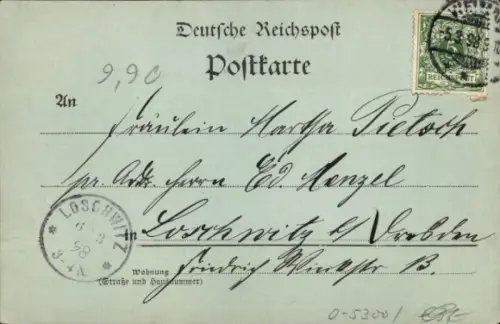 Deutsche Reichspost
Postkarte
9,90
5.3.98
REICHSPOST
An
Fräulein Martha Pietsch
pr. Adr. Herrn Ed. Menzel
in Loschwitz b/Dresden
LOSCHWITZ
6 3
98
Wohnung
(Straße und Hausnummer)
Friedrich Wieckstr 13.
0-53001